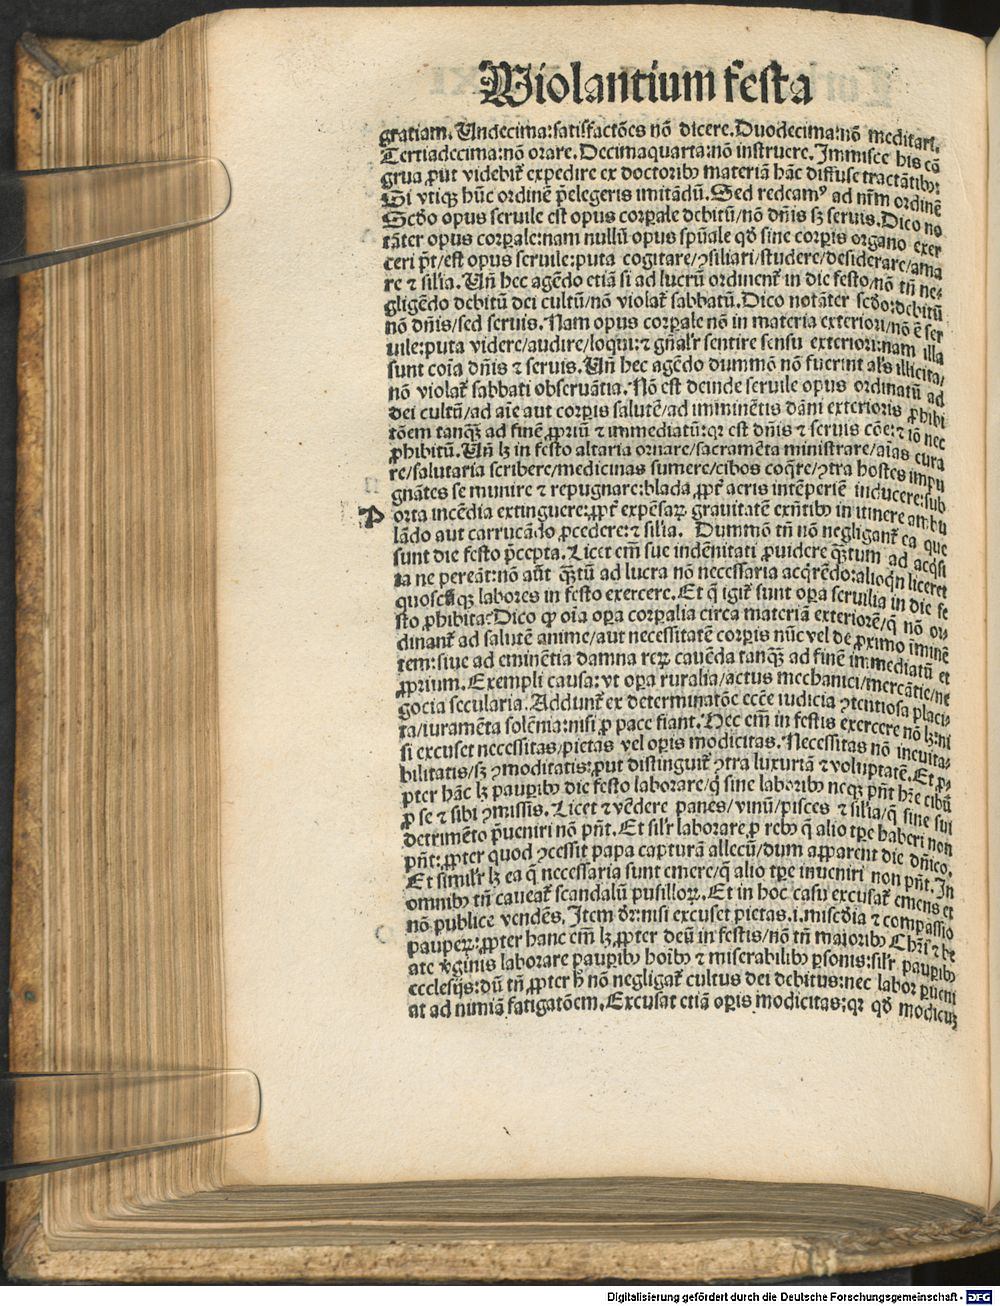 Violantium festa
gratiam. Undecima: satisfactões nõ dicere. Duodecima: nõ meditari.
Tertiadecima: nõ orare. Decimaquarta: nõ instruere. Immisce his cõ
grua ꝓut videbit̃ expedire ex doctoribꝰ materiã hãc diffuse tractãtibꝰ:
Si vtiqꝫ hũc ordinẽ p̃elegeris imitãdũ. Sed redeamꝰ ad nr̃m ordinẽ
Scðo opus seruile est opus corꝑale debitũ/nõ dñis sꝫ seruis. Dico no
tãter opus corꝑale: nam nullũ opus spũale qð sine corꝑis organo exer
ceri põt/est opus seruile: puta cogitare/ꝯsiliari/studere/desiderare/ama
re ⁊ silia. Vñ hec agẽdo etiã si ad lucrũ ordinent̃ in die festo/nõ tñ ne⸗
gligẽdo debitũ dei cultũ/nõ violat̃ sabbatũ. Dico notãter scðo: debitũ
nõ dñis/sed seruis. Nam opus corꝑale nõ in materia exteriori/nõ ẽ ser
uile: puta videre/audire/loqui: ⁊ gñalr̃ sentire sensu exteriori: nam illa
sunt coĩa dñis ⁊ seruis. Vñ hec agẽdo dummõ nõ fuerint al's illicita/
nõ violat̃ sabbati obseruãtia. Nõ est deinde seruile opus ordinatũ ad
dei cultũ/ad aĩe aut corꝑis salutẽ/ad imminẽtis dãni exterioris ꝓhibi
tõem tanqꝫ̃ ad finẽ ꝓpriũ ⁊ immediatũ: qꝛ est dñis ⁊ seruis cõe: ⁊ iõ nec
ꝓhibitũ. Vñ lꝫ in festo altaria ornare/sacramẽta ministrare/aĩas cura
re/salutaria scribere/medicinas sumere/cibos coq̃re/ꝯtra hostes impu
gnãtes se munire ⁊ repugnare: blada ꝓpt̃ aeris intẽperiẽ inducere: sub
P orta incẽdia extinguere: ꝓpt̃ expẽsaꝝ grauitatẽ exñtibꝰ in itinere ambu
lãdo aut carrucãdo ꝓcedere: ⁊ silia. Dummõ tñ nõ negligant̃ ea que
sunt die festo p̃cepta. Licet em̃ sue indẽnitati ꝓuidere qꝫ̃tum ad acq̃si
ta ne pereãt: nõ aũt qꝫ̃tũ ad lucra nõ necessaria acq̃rẽdo: alioqñ liceret
quoscũqꝫ labores in festo exercere. Et q̃ igit̃ sunt oꝑa seruilia in die fe
sto ꝓhibita: Dico ꝙ oĩa oꝑa corꝑalia circa materiã exteriorẽ/q̃ nõ or⸗
dinant̃ ad salutẽ anime/aut necessitatẽ corꝑis nũc vel de ꝓximo ĩminẽ
tem: siue ad eminẽtia damna reꝝ cauẽda tanqꝫ̃ ad finẽ immediatũ et
ꝓprium. Exempli causa: vt oꝑa ruralia/actus mechanici/mercãtie/ne
gocia secularia. Addunt̃ ex determinatõe ecc̃e iudicia ꝯtentiosa placi⸗
ta/iuramẽta solẽnia: nisi ꝓ pace fiant. Hec em̃ in festis exercere nõ lꝫ: ni
si excuset necessitas/pietas vel oꝑis modicitas. Necessitas nõ ineuita⸗
bilitatis/sꝫ ꝯmoditatis: ꝓut distinguit̃ ꝯtra luxuriã ⁊ voluptatẽ. Et ꝓ⸗
pter hãc lꝫ pauꝑibꝰ die festo laborare/q̃ sine laboribꝰ neqꝫ pñt hr̃e cibũ
ꝓ se ⁊ sibi ꝯmissis. Licet ⁊ vẽdere panes/vinũ/pisces ⁊ silia/q̃ sine sui
detrimẽto p̃ueniri nõ pñt. Et silr̃ laborare ꝓ rebꝰ q̃ alio tp̃e haberi non
pñt: ꝓpter quod ꝯcessit papa capturã allecũ/dum apparent die dñico.
Et similr̃ lꝫ ea q̃ necessaria sunt emere/q̃ alio tp̃e inueniri non pñt. In
omnibꝰ tñ caueat̃ scandalũ pusilloꝝ. Et in hoc casu excusat̃ emens et
nõ publice vendẽs. Item dr̃: nisi excuset pietas. i. misc̃dia ⁊ compassio
pauperꝝ: ꝓpter hanc em̃ lꝫ ꝓpter deũ in festis/nõ tñ maioribꝰ Chr̃i ⁊ be
ate ꝟginis laborare pauꝑibꝰ hoĩbꝰ ⁊ miserabilibꝰ ꝑsonis: silr̃ pauꝑibꝰ
ecclesijs: dũ tñ ꝓpter h̃ nõ negligat̃ cultus dei debitus: nec labor ꝑueni
at ad nimiã fatigatõem. Excusat etiã oꝑis modicitas: qꝛ qð modicuꝫ
Digitalisierung gefördert durch die Deutsche Forschungsgemeinschaft - DFG